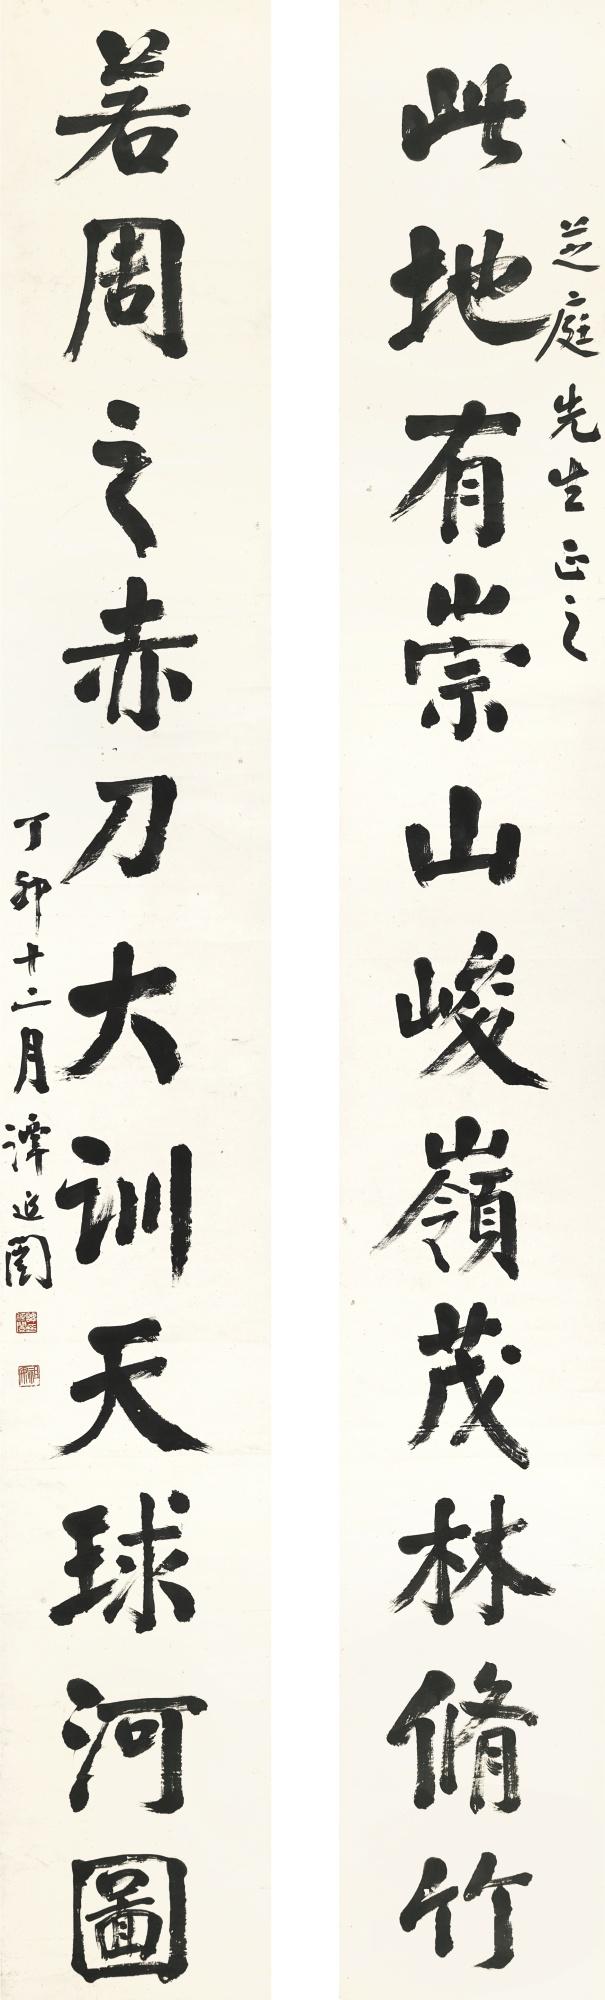 芝庭先生正之
此地有崇山峻嶺茂林脩竹
若周之赤刀大訓天球河圖
丁卯十二月譚延闓